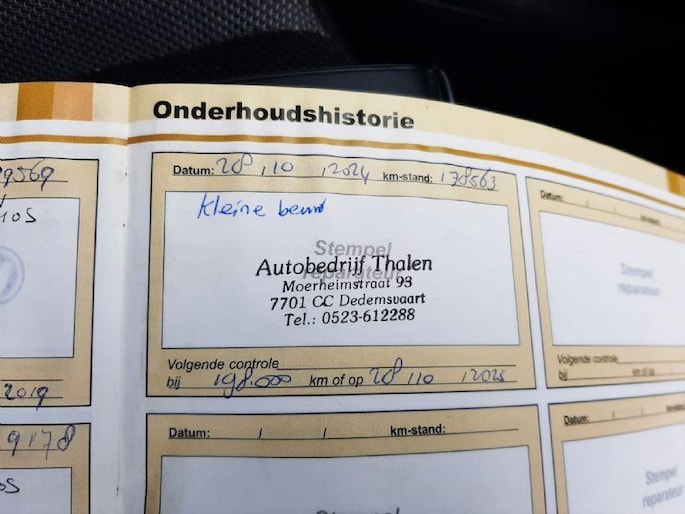 Onderhoudshistorie
9569
Datum: 28 / 10 / 2024 km-stand: 178563
Kleine beurt
Stempel
reparateur
Autobedrijf Thalen
Moerheimstraat 93
7701 CC Dedemsvaart
Tel.: 0523-612288
Volgende controle
bij 198.000 km of op 28 / 10 / 2025
2019
9178
Datum: / / km-stand:
Stempel
Datum: / /
Stempel
reparateur
Volgende controle
bij km of op / /
Datum: / /
Stempel
reparateur